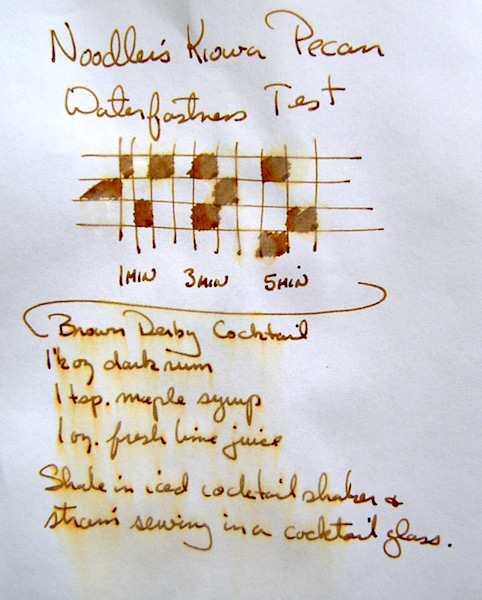 Noodler's Kiowa Pecan
Waterfastness Test
1 MIN 3 MIN 5 MIN
Brown Derby Cocktail
1½ oz dark rum
1 tsp. maple syrup
1 oz. fresh lime juice
Shake in iced cocktail shaker &
strain serving in a cocktail glass.